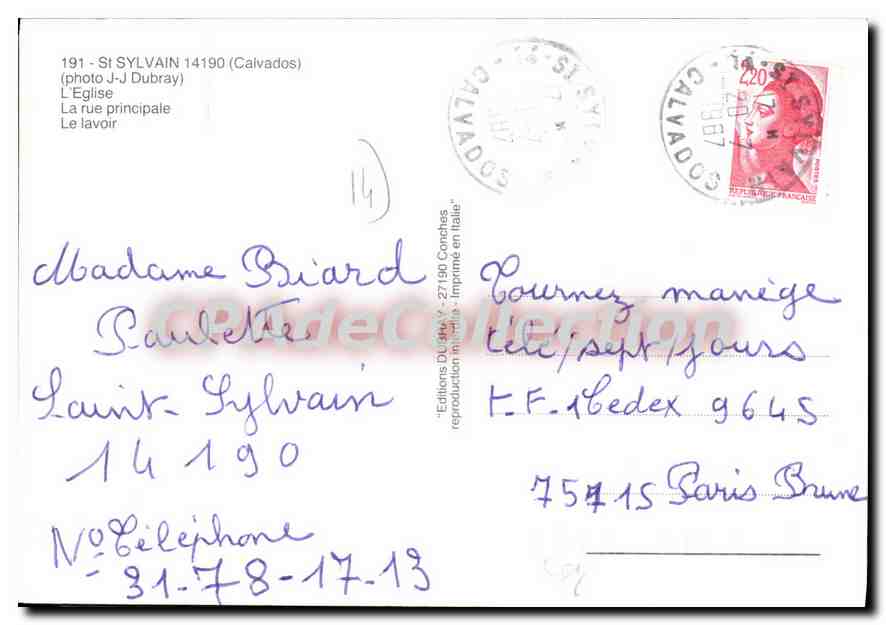 191 - St SYLVAIN 14190 (Calvados)
(photo J-J Dubray)
L'Eglise
La rue principale
Le lavoir
14
Madame Biard
Paulette
Saint-Sylvain
14190
No Téléphone
31-78-17-13
"Editions DUBRAY - 27190 Conches
reproduction interdite - Imprimé en Italie"
CPAdeCollection
ST SYLVAIN
CALVADOS
ST SYLVAIN
1987
CALVADOS
2,20
POSTES
REPUBLIQUE FRANÇAISE
Tournez manège
télé/sept/jours
T.F.1 Cedex 9645
75715 Paris Brune